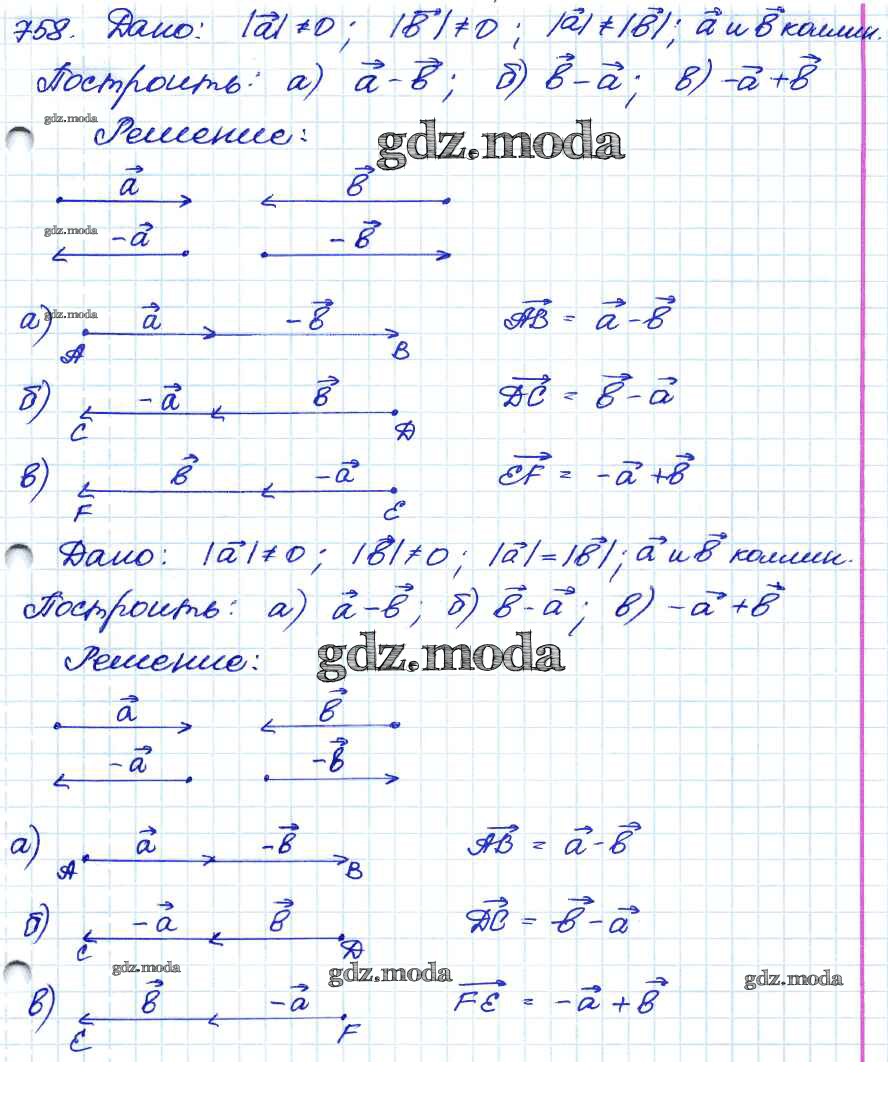 758. Дано: |a⃗| ≠ 0; |b⃗| ≠ 0; |a⃗| ≠ |b⃗|; a⃗ и b⃗ коллин.
Построить: а) a⃗ - b⃗; б) b⃗ - a⃗; в) -a⃗ + b⃗
gdz.moda
Решение: gdz.moda
a⃗ b⃗
gdz.moda
-a⃗ -b⃗
gdz.moda
а) a⃗ -b⃗ AB⃗ = a⃗ - b⃗
A B
б) -a⃗ b⃗ DC⃗ = b⃗ - a⃗
C D
в) b⃗ -a⃗ EF⃗ = -a⃗ + b⃗
F E
Дано: |a⃗| ≠ 0; |b⃗| ≠ 0; |a⃗| = |b⃗|; a⃗ и b⃗ коллин.
Построить: а) a⃗ - b⃗; б) b⃗ - a⃗; в) -a⃗ + b⃗
Решение: gdz.moda
a⃗ b⃗
-a⃗ -b⃗
а) a⃗ -b⃗ AB⃗ = a⃗ - b⃗
A B
б) -a⃗ b⃗ DC⃗ = b⃗ - a⃗
C D
gdz.moda gdz.moda gdz.moda
в) b⃗ -a⃗ FE⃗ = -a⃗ + b⃗
E F